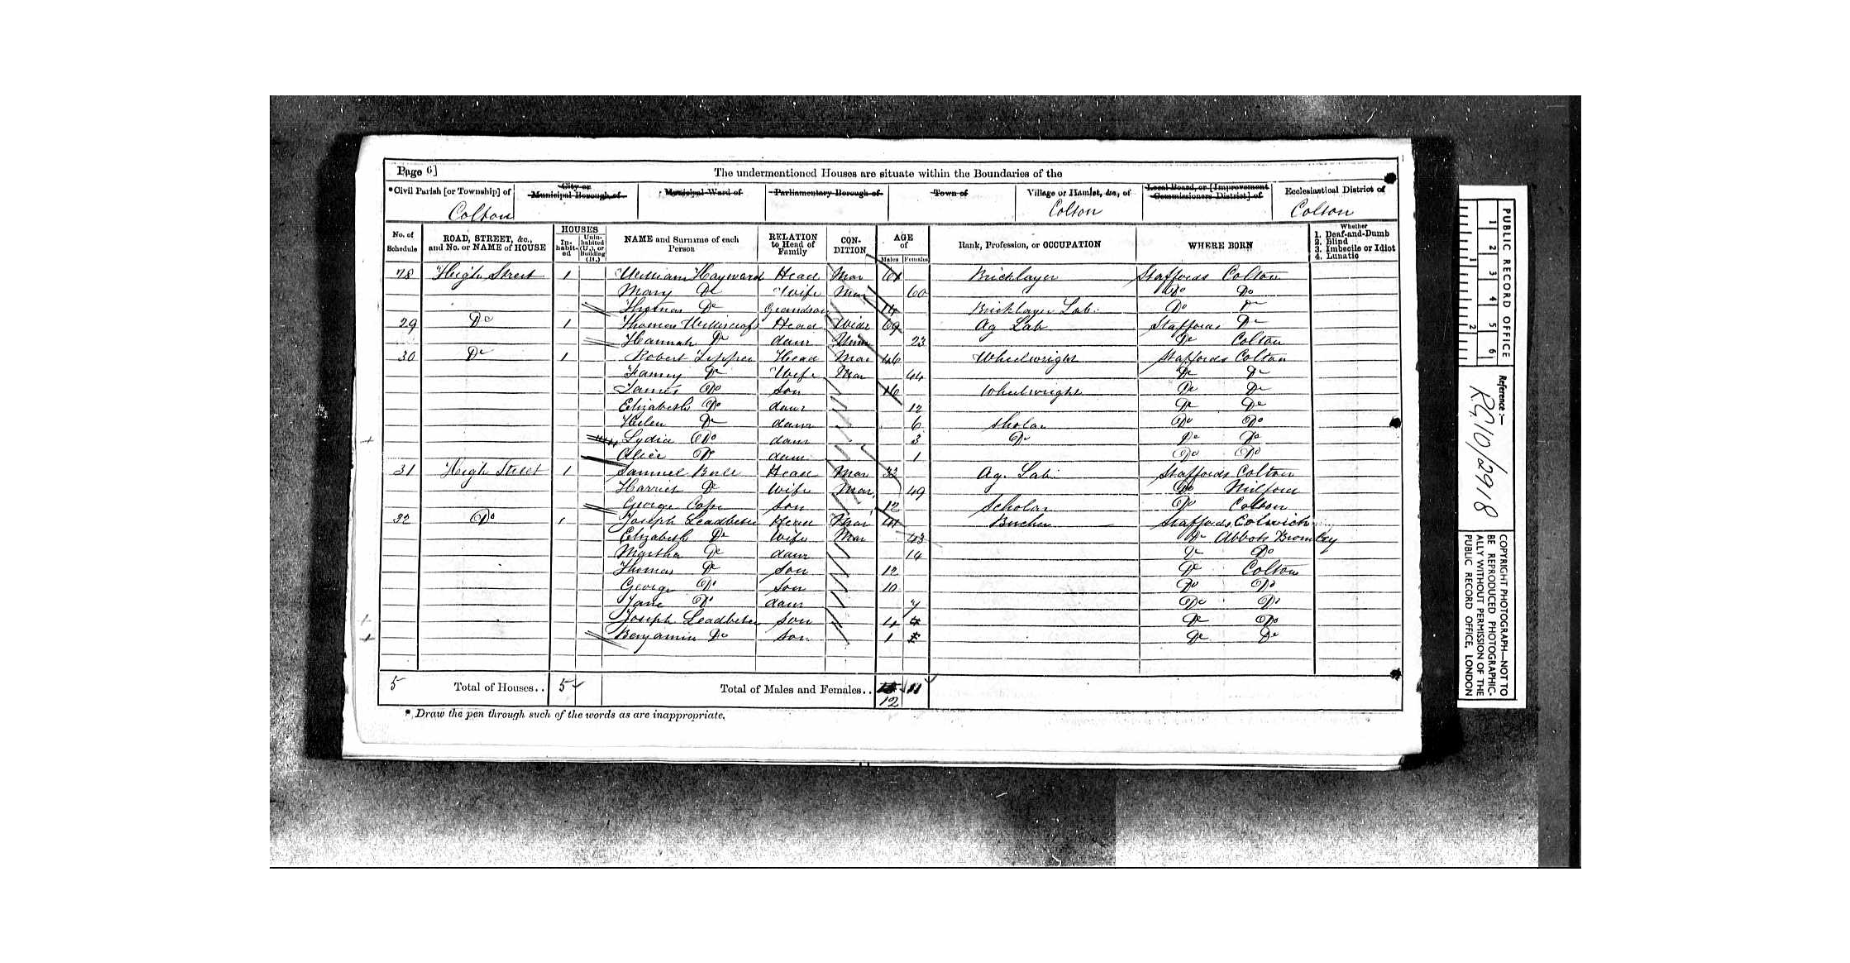 Page 6]
The undermentioned Houses are situate within the Boundaries of the
*Civil Parish [or Township] of
City or Municipal Borough of
Municipal Ward of
Parliamentary Borough of
Town of
Village or Hamlet, &c., of
Local Board, or [Improvement Commissioners District] of
Ecclesiastical District of
Colton Colton Colton
No. of Schedule
ROAD, STREET, &c., and No. or NAME of HOUSE
HOUSES
In-habit-ed
Unin-habited (U.), or Building (B.)
NAME and Surname of each Person
RELATION to Head of Family
CON-DITION
AGE of
Males Females
Rank, Profession, or OCCUPATION
WHERE BORN
Whether
1. Deaf-and-Dumb
2. Blind
3. Imbecile or Idiot
4. Lunatic
28 High Street 1 William Hayward Head Mar 61 Bricklayer Staffords Colton
Mary Do Wife Mar 60 Do Do
Thomas Do Grandson 14 Bricklayer Lab. Do Do
29 Do 1 Thomas Head Widr 69 Ag Lab Staffords Do
Hannah Do daur Unm 23 Do Colton
30 Do 1 Robert Head Mar 46 Wheelwright Staffords Colton
Fanny Do Wife Mar 44 Do Do
James Do son 16 Wheelwright Do Do
Elizabeth Do daur 12 Do Do
Helen Do daur 6 Scholar Do Do
Lydia Do daur 3 Do Do Do
Alice Do daur 1 Do Do
31 High Street 1 Samuel Head Mar Ag. Lab Staffords Colton
Harriet Do Wife Mar 49 Do Milford
George Cope son 12 Scholar Do Colton
32 Do 1 Joseph Leadbeter Head Mar 41 Staffords Colwich
Elizabeth Do Wife Mar 43 Do Abbots Bromley
Martha Do daur 14 Do Do
Thomas Do son 12 Do Colton
George Do son 10 Do Do
Jane Do daur 7 Do Do
Joseph Leadbeter son 4 Do Do
Benjamin Do son 1 Do Do
5 Total of Houses.. 5 Total of Males and Females.. 11
12
* Draw the pen through such of the words as are inappropriate.
PUBLIC RECORD OFFICE
1 2 3 4 5 6
1 2
Reference :-
RG10/2918
COPYRIGHT PHOTOGRAPH—NOT TO
BE REPRODUCED PHOTOGRAPHIC-
ALLY WITHOUT PERMISSION OF THE
PUBLIC RECORD OFFICE, LONDON